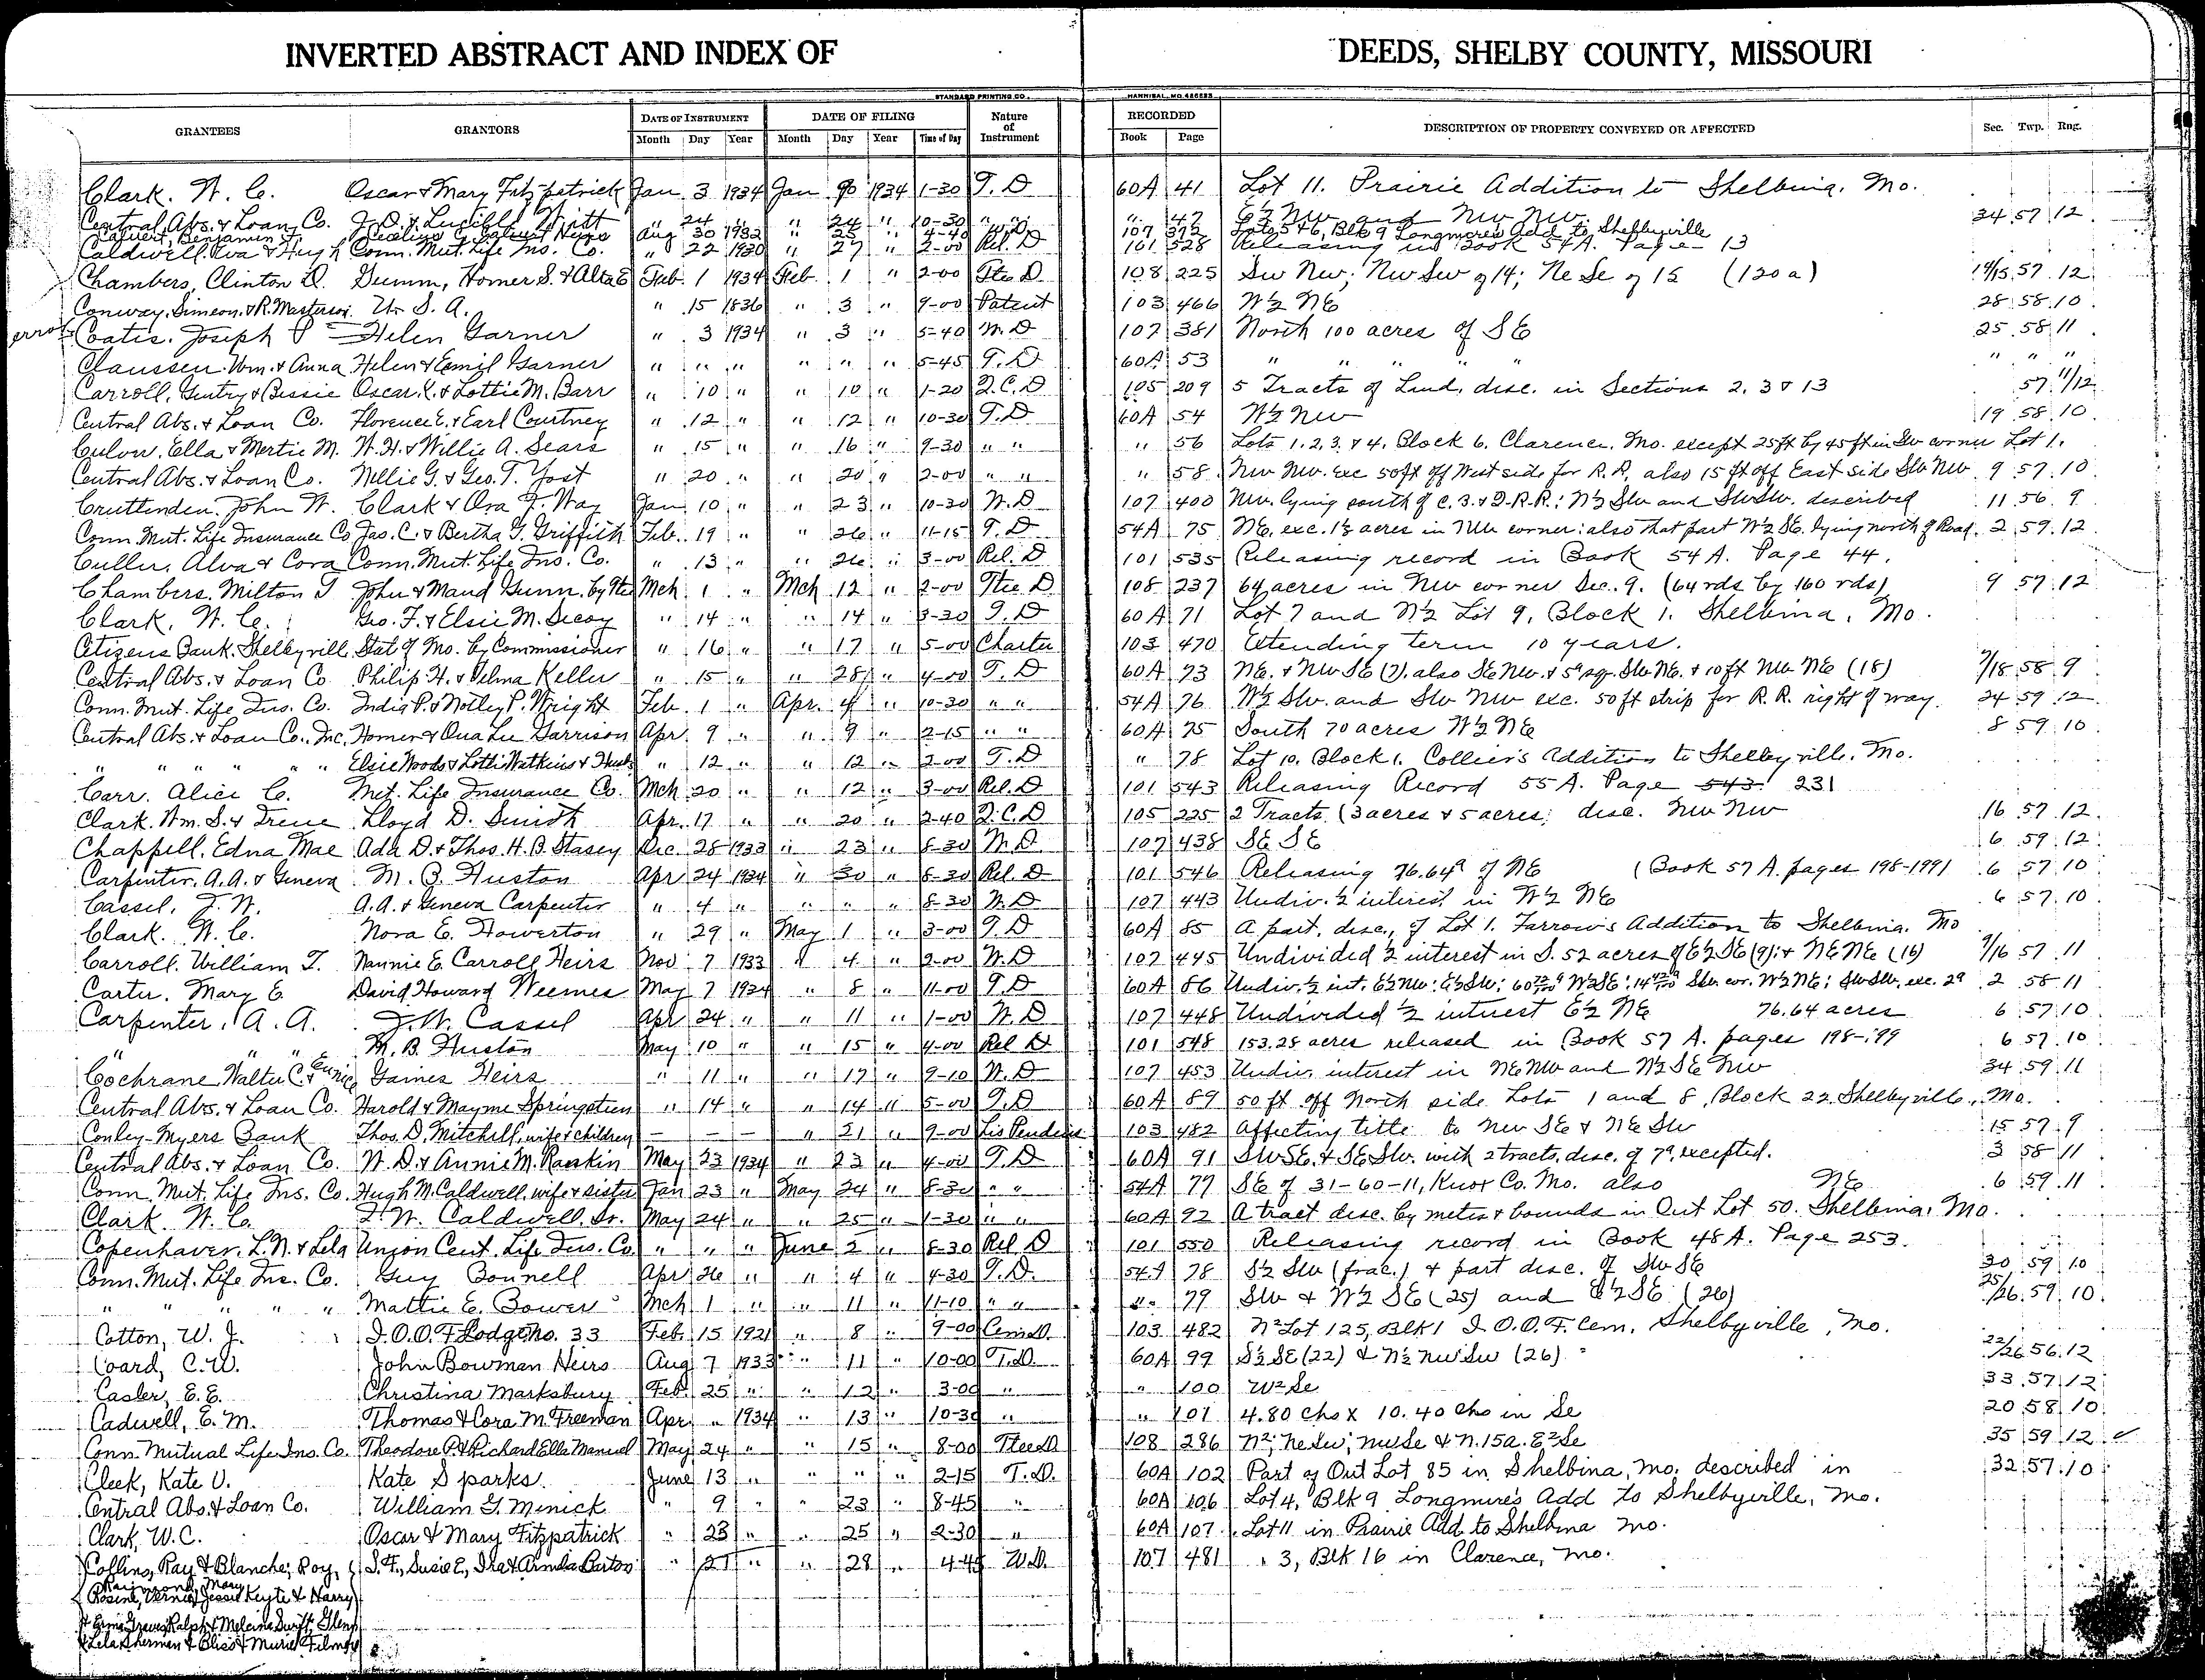 INVERTED ABSTRACT AND INDEX OF DEEDS, SHELBY COUNTY, MISSOURI
STANDARD PRINTING CO. HANNIBAL, MO.
GRANTEES GRANTORS DATE OF INSTRUMENT DATE OF FILING Nature of Instrument RECORDED DESCRIPTION OF PROPERTY CONVEYED OR AFFECTED Sec. Twp. Rng.
Month Day Year Month Day Year Time of Day Book Page
Clark. W. C. Oscar & Mary Fitzpatrick Jan 3 1934 Jan 1934 1-30 T. D 60A 41 Lot 11. Prairie Addition to Shelbina, Mo.
Central Abs. & Loan Co. J. D. & Lucille Witt " 24 " " 24 " 10-30 " " " 47 E½ NW and NW NW. 34 57 12
Benjamin Heirs Aug 30 1932 " 25 " 4-40 W.D 107 372 Lots 5 & 6, Blk 9 Longmires Add to Shelbyville
Caldwell, Iva & Hugh Conn. Mut. Life Ins. Co. " 22 1930 " 27 " 2-00 Rel. D 101 528 Releasing in Book 54A. Page 13
Chambers, Clinton D. Gunn, Homer S. & Alta E Feb. 1 1934 Feb. 1 " 2-00 Ttee D 108 225 SW NW; NW SW of 14; NE SE of 15 (120 a) 14/15 57 12
Conway, Simeon & R. Masterson U. S. A. " 15 1836 " 3 " 9-00 Patent 103 466 W½ NE 28 58 10
error Coatis. Joseph P Helen Garner " 3 1934 " 3 " 5-40 W. D 107 381 North 100 acres of SE 25 58 11
Claussen. Wm. & Anna Helen & Emil Garner " " " " " " 5-45 T. D 60A 53 " " " " " " " "
Carroll, Gentry & Bessie Oscar L. & Lottie M. Barr " 10 " " 10 " 1-20 Q. C. D 105 209 5 Tracts of Land, desc. in Sections 2, 3 & 13 57 11/12
Central Abs. & Loan Co. Florence E. & Earl Courtney " 12 " " 12 " 10-30 T. D 60A 54 W½ NW 19 58 10
Culver, Ella & Mertie M. W. H. & Willie A. Sears " 15 " " 16 " 9-30 " " " 56 Lots 1, 2, 3, & 4, Block 6, Clarence, Mo. except 25ft by 45ft in SW corner Lot 1.
Central Abs. & Loan Co. Nellie G. & Geo. T. Yost " 20 " " 20 " 2-00 " " " 58 NW NW. exc 50ft off West side for R. R, also 15ft off East side SW NW 9 57 10
Cruttenden. John W. Clark & Ora F. Way Jan 10 " " 23 " 10-30 W. D 107 400 NW. lying south of C. B. & Q. R.R.; N½ SW and SW SW, described 11 56 9
Conn. Mut. Life Insurance Co Jas. C. & Bertha G. Griffith Feb. 19 " " 26 " 11-15 T. D 54A 75 NE, exc. 1½ acres in NW corner; also that part W½ SE. lying north of Road. 2 59 12
Culler, Alva & Cora Conn. Mut. Life Ins. Co. " 13 " " 26 " 3-00 Rel. D 101 535 Releasing record in Book 54 A. Page 44.
Chambers. Milton T John & Maud Gunn, by Ttee Mch 1 " Mch 12 " 2-00 Ttee D 108 237 64 acres in NW corner Sec. 9. (64 rds by 160 rds) 9 57 12
Clark, W. C. Geo. F. & Elsie M. Decoy " 14 " " 14 " 3-30 T. D 60A 71 Lot 7 and N½ Lot 9, Block 1. Shelbina, Mo.
Citizens Bank. Shelbyville Stat of Mo. by Commissioner " 16 " " 17 " 5-00 Charter 103 470 Extending term 10 years.
Central Abs. & Loan Co Philip H. & Velma Keller " 15 " " 28 " 4-00 T. D 60A 73 NE. & NW SE (7), also SE NW. & 5ª sq. SW NE. & 10ft NW NE (18) 7/18 58 9
Conn. Mut. Life Ins. Co. Indis P. & Motley P. Wright Feb. 1 " Apr. 4 " 10-30 " " 54A 76 W½ SW. and SW NW exc. 50ft strip for R. R. right of way. 24 59 12
Central Abs. & Loan Co., Inc. Homer & Ona Lee Garrison Apr. 9 " " 9 " 2-15 " " 60A 75 South 70 acres W½ NE 8 59 10
" " " " " Elsie Woods & Lottie Watkins & Husb. " 12 " " 12 " 2-00 T. D " 78 Lot 10. Block 1. Collier's Addition to Shelbyville, Mo.
Carr. Alice C. Met. Life Insurance Co. Mch 20 " " 12 " 3-00 Rel. D 101 543 Releasing Record 55 A. Page 543 231
Clark. Wm. S. & Irene Lloyd D. Smith Apr. 17 " " 20 " 2-40 Q. C. D 105 225 2 Tracts (3 acres & 5 acres; desc. NW NW 16 57 12
Chappell, Edna Mae Ada D. & Thos. H. B. Stasey Dec. 28 1933 " 23 " 8-30 W. D 107 438 SE SE 6 59 12
Carpenter. A. A. & Geneva M. B. Huston Apr 24 1934 " 30 " 8-30 Rel. D 101 546 Releasing 76.64ª of NE (Book 57 A. pages 198-199) 6 57 10
Cassel, J. W. A. A. & Geneva Carpenter " 4 " " " " 8-30 W. D 107 443 Undiv. ½ interest in W½ NE 6 57 10
Clark. W. C. Nora E. Howerton " 29 " May 1 " 3-00 T. D 60A 85 A part, desc., of Lot 1. Farrow's Addition to Shelbina. Mo
Carroll. William T. Nannie E. Carroll Heirs Nov 7 1933 " 4 " 2-00 W. D 107 445 Undivided ½ interest in S. 52 acres of E½ SE (9); & NE NE (16) 9/16 57 11
Carter. Mary E. David Howard Weemes May 7 1934 " 8 " 11-00 T. D 60A 86 Undiv. ½ int. E½ NW; E½ SW; W½ SE; SW cor. W½ NE; SW SW. exc. 2ª 2 58 11
Carpenter, A. A. J. W. Cassel Apr 24 " " 11 " 1-00 W. D 107 448 Undivided ½ interest E½ NE 76.64 acres 6 57 10
" " " M. B. Huston May 10 " " 15 " 4-00 Rel D 101 548 153.28 acres released in Book 57 A. pages 198-199 6 57 10
Cochrane Walter C. & Eunice Gaines Heirs " 11 " " 17 " 9-10 W. D 107 453 Undiv. interest in NE NW and W½ SE NW 34 59 11
Central Abs. & Loan Co. Harold & Mayme Springsteen " 14 " " 14 " 5-00 T. D 60A 89 50 ft off North side Lots 1 and 8, Block 22. Shelbyville, Mo.
Conley-Myers Bank Thos. D. Mitchell, wife & children — — — " 21 " 9-00 Lis Pendens 103 482 Affecting title to NW SE & NE SW 15 57 9
Central Abs. & Loan Co. W. D. & Annie M. Rankin May 23 1934 " 23 " 4-00 T. D 60A 91 SW SE. & SE SW. with 2 tracts, desc. of 7ª, excepted. 3 58 11
Conn. Mut. Life Ins. Co. Hugh M. Caldwell, wife & sister Jan 23 " May 24 " 8-30 " " 54A 77 SE of 31-60-11, Knox Co. Mo. also NE 6 59 11
Clark. W. C. F. W. Caldwell, Sr. May 24 " " 25 " 1-30 " " 60A 92 A tract desc. by metes & bounds in Out Lot 50. Shelbina, Mo.
Copenhaver. L. N. & Lela Union Cent. Life Ins. Co. " " " June 2 " 8-30 Rel D 101 550 Releasing record in Book 48 A. Page 253.
Conn. Mut. Life Ins. Co. Guy Bonnell Apr 26 " " 4 " 4-30 T. D. 54A 78 S½ SW (frac.) & part desc. of SW SE 30 59 10
" " " " " Mattie E. Bower Mch 1 " " 11 " 11-10 " " " 79 SW & W½ SE (25) and E½ SE (26) 25/26 59 10
Cotton, W. J. I. O. O. F. Lodge No. 33 Feb. 15 1921 " 8 " 9-00 Cem. D. 103 482 N² Lot 125, Blk 1 I. O. O. F. Cem. Shelbyville, Mo.
Coard, C. W. John Bowman Heirs Aug 7 1933 " 11 " 10-00 T. D. 60A 99 S½ SE (22) & N½ NW SW (26) 22/26 56 12
Casler, E. E. Christina Marksbury Feb. 25 " " 12 " 3-00 " " 100 W² SE 33 57 12
Cadwell, E. M. Thomas & Cora M. Freeman Apr. " 1934 " 13 " 10-30 " " 101 4.80 chs x 10.40 chs in SE 20 58 10
Conn. Mutual Life Ins. Co. Theodore P. & Richard Ella Manuel May 24 " " 15 " 8-00 Ttee D. 108 286 N²; NE SW; NW SE & N. 15a. E² SE 35 59 12 ✓
Cleek, Kate V. Kate Sparks June 13 " " " " 2-15 T. D. 60A 102 Part of Out Lot 85 in Shelbina, Mo. described in 32 57 10
Central Abs. & Loan Co. William G. Minick " 9 " " 23 " 8-45 " 60A 106 Lot 4, Blk 9 Longmire's Add to Shelbyville, Mo.
Clark, W. C. Oscar & Mary Fitzpatrick " 23 " " 25 " 2-30 " 60A 107 Lot 11 in Prairie Add to Shelbina Mo.
Collins, Ray & Blanche; Roy, S. F., Susie E., Ira & Armilda Barton " 21 " " 28 " 4-45 W. D. 107 481 " 3, Blk 16 in Clarence, Mo.
Raymond, Mary
Rosine, Vernie, Jessie Keyte & Harry
& Erma Graves, Ralph & Melvina Swift, Glenn
& Lela Sherman & Bliss & Muriel Filmer